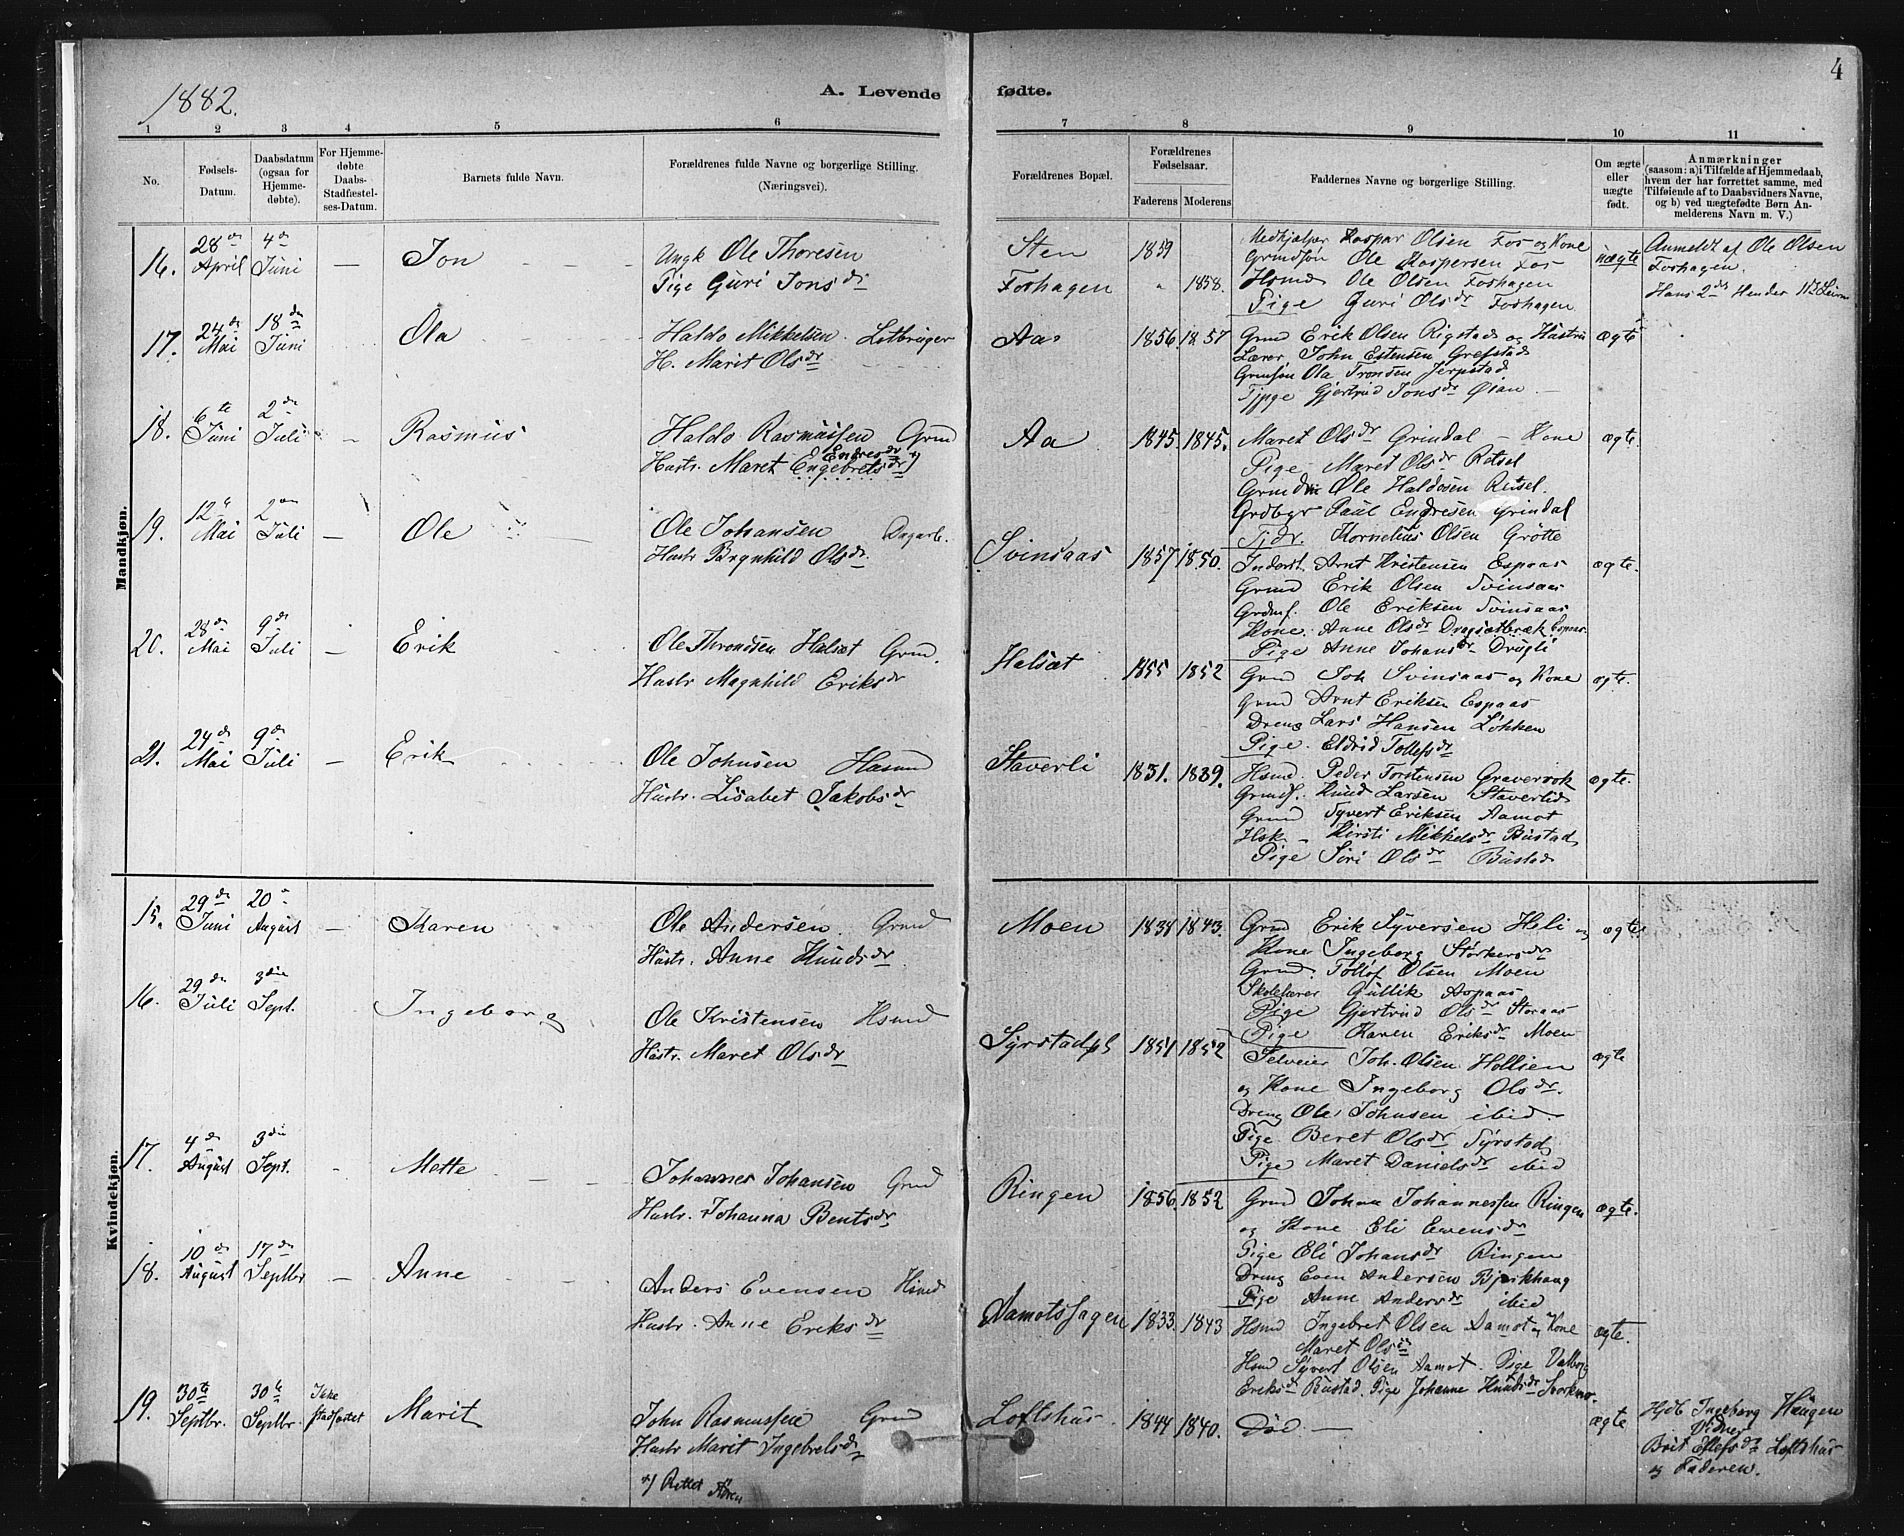 4
1882.
A. Levende fødte.
1 2 3 4 5 6 7 8 9 10 11
No.
Fødsels-
Datum.
Daabsdatum
(ogsaa for
Hjemme-
døbte).
For Hjemme-
døbte
Daabs-
Stadfæstel-
ses-Datum.
Barnets fulde Navn.
Forældrenes fulde Navne og borgerlige Stilling.
(Næringsvei).
Forældrenes Bopæl.
Forældrenes
Fødselsaar.
Faderens Moderens
Faddernes Navne og borgerlige Stilling.
Om ægte
eller
uægte
født.
Anmærkninger
(saasom: a) i Tilfælde af Hjemmedaab,
hvem der har forrettet samme, med
Tilføiende af to Daabsvidners Navne,
og b) ved uægtefødte Børn An-
melderens Navn m. V.)
Mandkjøn.
16. 28de April 4de Juni — Jon
Ungk Ole Thoresen
Pige Guri Jonsdr
Sten 1859
Foshagen " 1858.
Medhjælper Kaspar Olsen Fos og Kone
Grmdsøn Ole Kaspersen Fos
Hsmd Ole Olsen Foshagen
Pige Guri Olsdr Foshagen
uægte
Anmeldt af Ole Olsen
Foshagen.
Hans 2det
17. 24de Mai 18de Juni Ola
Haldo Mikkelsen
H. Marit Olsdr
Aa 1856. 1857
Grmd Erik Olsen Rigstad og Hustru
Lærer John Estensen Grefstad
Grmsøn Ola Tronsen Jerpstad
Tjpge Gjertrud Jonsdr Øian —
ægte
18. 6te Juni 2den Juli — Rasmus
Haldo Rasmussen Grmd
Endresdr
Hustr. Maret Engebretsdr
Aa 1845 1845.
Maret Olsdr Grindal — Kone
Pige Maret Olsdr Ratsel
Ole Haldosen Rutsel.
Grdbgr Paul Endresen Grindal
Tjdr. Kornelius Olsen Grötte
ægte.
19. 12te Mai 2den Juli — Ole
Ole Johansen Dagarb.
Hustr Brynhild Olsdr.
Svinsaas 1857 1850.
Inderst. Arnt Kristensen Espaas
Grmd Erik Olsen Svinsaas
Grdmf. Ole Eriksen Svinsaas
Kone Anne Olsdr Dragsætbræk Espaas
Pige Anne Johansdr Drugli
ægte.
20. 28de Mai 9de Juli — Erik
Ole Throndsen Halsæt Grmd.
Hustr Magnhild Eriksdr
Halsæt 1855 1852
Grmd Joh Svinsaas og Kone
Grmd Arnt Eriksen Espaas
Dreng Lars Hansen Løkken
Pige. Eldrid Tollefsdr
ægte.
21. 24de Mai 9de Juli — Erik
Ole Johnsen Hsmd
Hustr. Lisabet Jakobsdr
Staverli 1831. 1839.
Hsmd. Peder Torstensen Gravervok
Grmdf. Knud Larsen Staverlid
Grmd Syvert Eriksen Aamot
Hsk — Kirsti Mikkelsdr Bustad
Pige Siri Olsdr Bustad
ægte.
Kvindekjøn.
15. 29de Juni 20de August — Karen
Ole Andersen. Grmd
Hustr. Anne Knudsdr.
Moen 1838 1843.
Grmd Erik Syversen Heli og
Kone Ingeborg Størkersdr
Grmd. Tollof Olsen Moen
Skolelærer Gullik Aspaas
Pige Gjertrud Olsdr Storaas
Pige Karen Eriksdr Moen
ægte
16. 29de Juli 3die Sept. Ingeborg
Ole Kristensen Hsmd
Hustr. Maret Olsdr
Syrstadpl 1851 1852
Selveier Joh. Olsen Hollien
og Kone Ingeborg Olsdr.
Dreng Ole Johnsen ibid
Pige Beret Olsdr Syrstad
Pige Maret Danielsdr ibid
ægte
17. 4de August 3die Sept. - Mette
Johannes Johansen Grmd
Hustr. Johanna Bentsdr
Ringen 1856. 1852
Grmd Johan Johannessen Ringen
og Kone Eli Evensdr
Pige Eli Johansdr Ringen
Dreng Even Andersen Bjørkhaug
Pige Anne Andersdr ibid
ægte.
18. 10de August 17de Septbr — Anne
Anders Evensen Hsmd
Hustr. Anne Eriksdr
Aamotshagen 1833. 1843
Hsmd Ingebret Olsen Aamot og Kone
Maret Olsdr
Hsmd Syvert Olsen Aamot. Pige Valborg
Eriksdr Bustad. Pige Johanne Knudsdr Svorkmo.
ægte.
19. 30te Septbr. 30te Septbr. Ikke stadfæstet Marit
John Rasmussen Grmd
Hustr Marit Ingebretsdr
Loftshus. 1844 1840.
Død —
ægte
Hjdb Ingeborg Haugen
Vidner
Brit Ellefsdr Loftshus
og Faderen.
x) Rettet